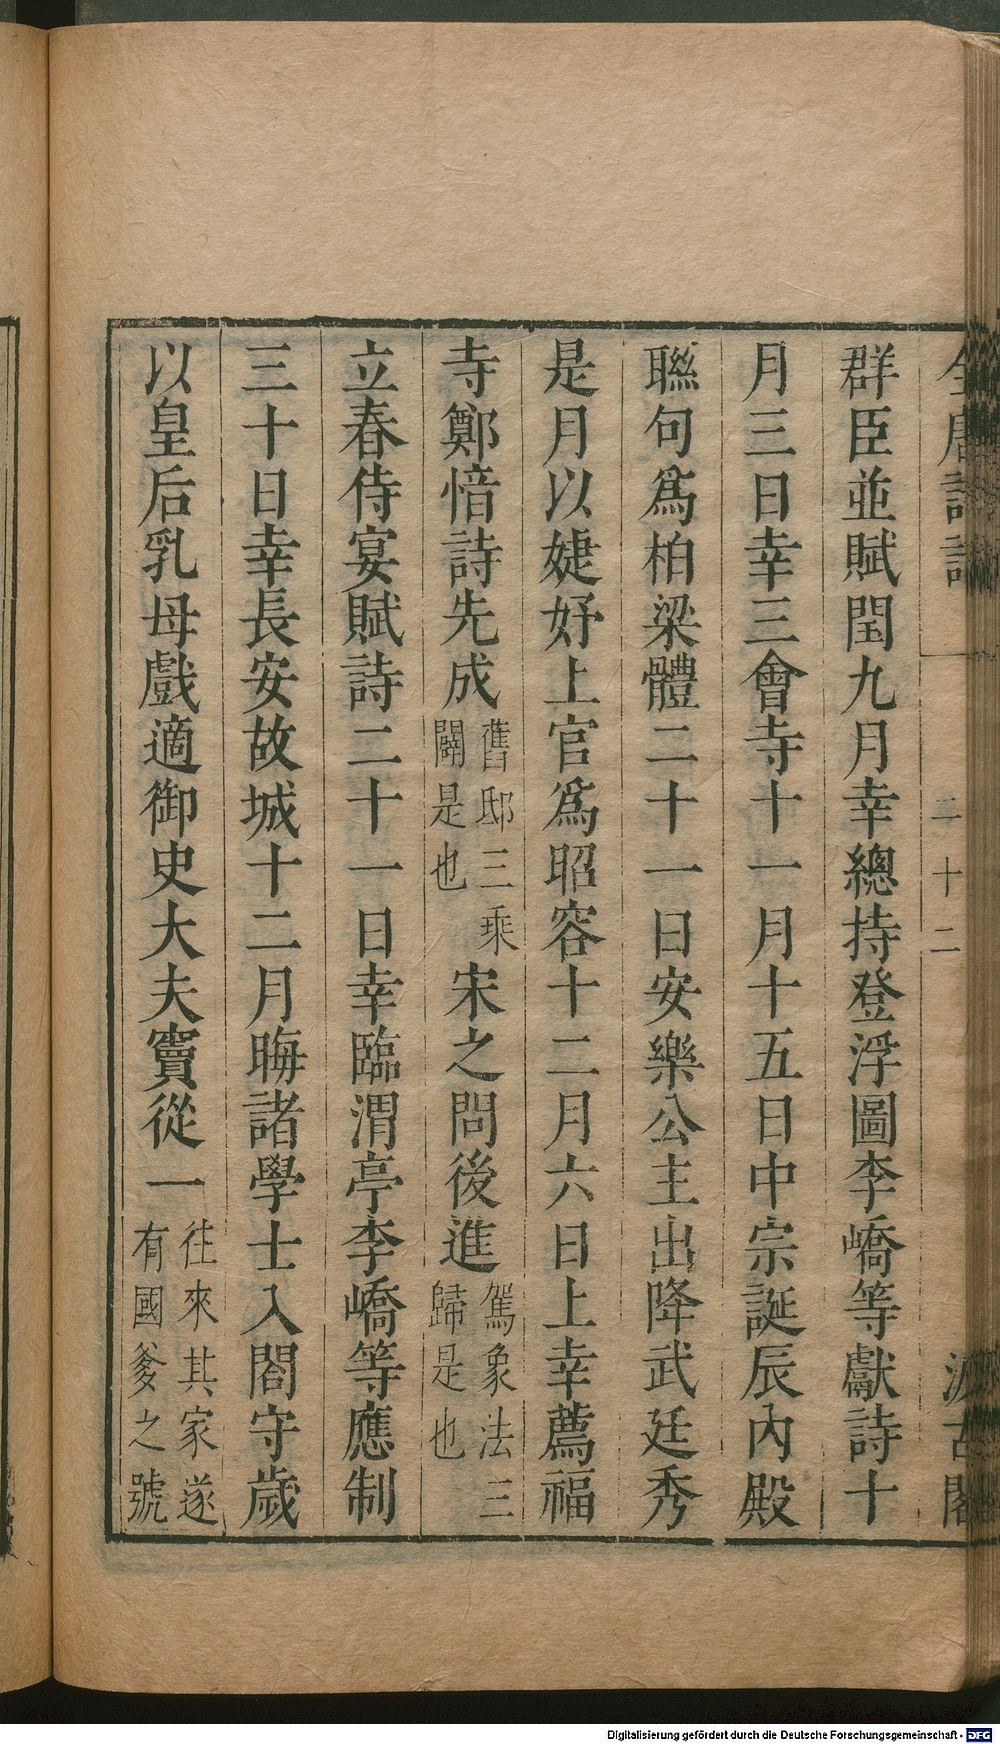 全唐詩話
二十二
汲古閣
群臣並賦閏九月幸總持登浮圖李嶠等獻詩十
月三日幸三會寺十一月十五日中宗誕辰內殿
聯句爲柏梁體二十一日安樂公主出降武廷秀
是月以婕妤上官爲昭容十二月六日上幸薦福
寺鄭愔詩先成舊邸三乘闢是也宋之問後進駕象法三歸是也
立春侍宴賦詩二十一日幸臨渭亭李嶠等應制
三十日幸長安故城十二月晦諸學士入閤守歲
以皇后乳母戲適御史大夫竇從一往來其家遂有國爹之號
Digitalisierung gefördert durch die Deutsche Forschungsgemeinschaft - DFG